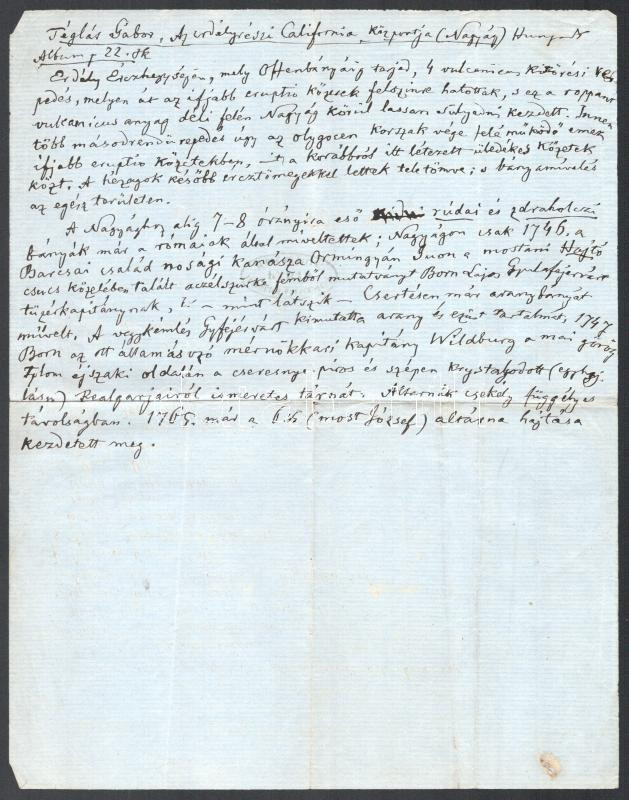 Téglás Gábor, Az erdélyrészi California központja (Nagyág) Hungar
Album, 22. sk
Erdély Érczhegységén, mely Offenbányáig terjed, 4 vulcanicus kitörési re
pedés, melyen át az ifjabb eruptio kőzetek felszínre hatottak, s ez a roppant
vulcanicus anyag déli felén Nagyág körül lassan sülyedni kezdett. Innen
több másodrendű repedés úgy az olygocen korszak vége felé működő
ifjabb eruptio közetekben, a korábbról itt létezett üledékes kőzetek
közt. A hézagok később ércztömegekkel lettek teletömve; s bányamívelés
az egész területen.
A Nagyághoz alig 7-8 órányira eső rúdai és zdraholczi
bányák már a rómaiak által míveltettek; Nagyágon csak 1746. a
Barcsai család nosági kanásza Ormingyán Juon a mostani Hajtó
csúcs közelében talált aczélszürke fémből mutatványt Born Lajos Gyulafejérvári
tüzérkapitánynak, ki – mint látszik – Csertésen már aranybányát
művelt. A vegykémlés Gyfejérvárt kimutatta arany és ezüst tartalmát, 1747
Born az ott állomásozó mérnökkari kapitány Wildburg a mai görög
tplom éjszaki oldalán a cseresnye-piros és szépen krystályodott
Realgarjairól ismeretes tárnát. Alternák csekély függélyes
távolságban. 1765. már a (most József) altárna hajtása
kezdetett meg.